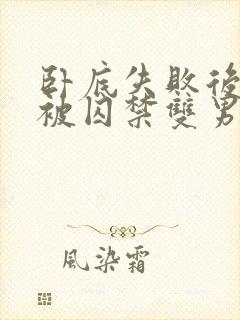 卧底失敗後
被囚禁雙男
風染霜